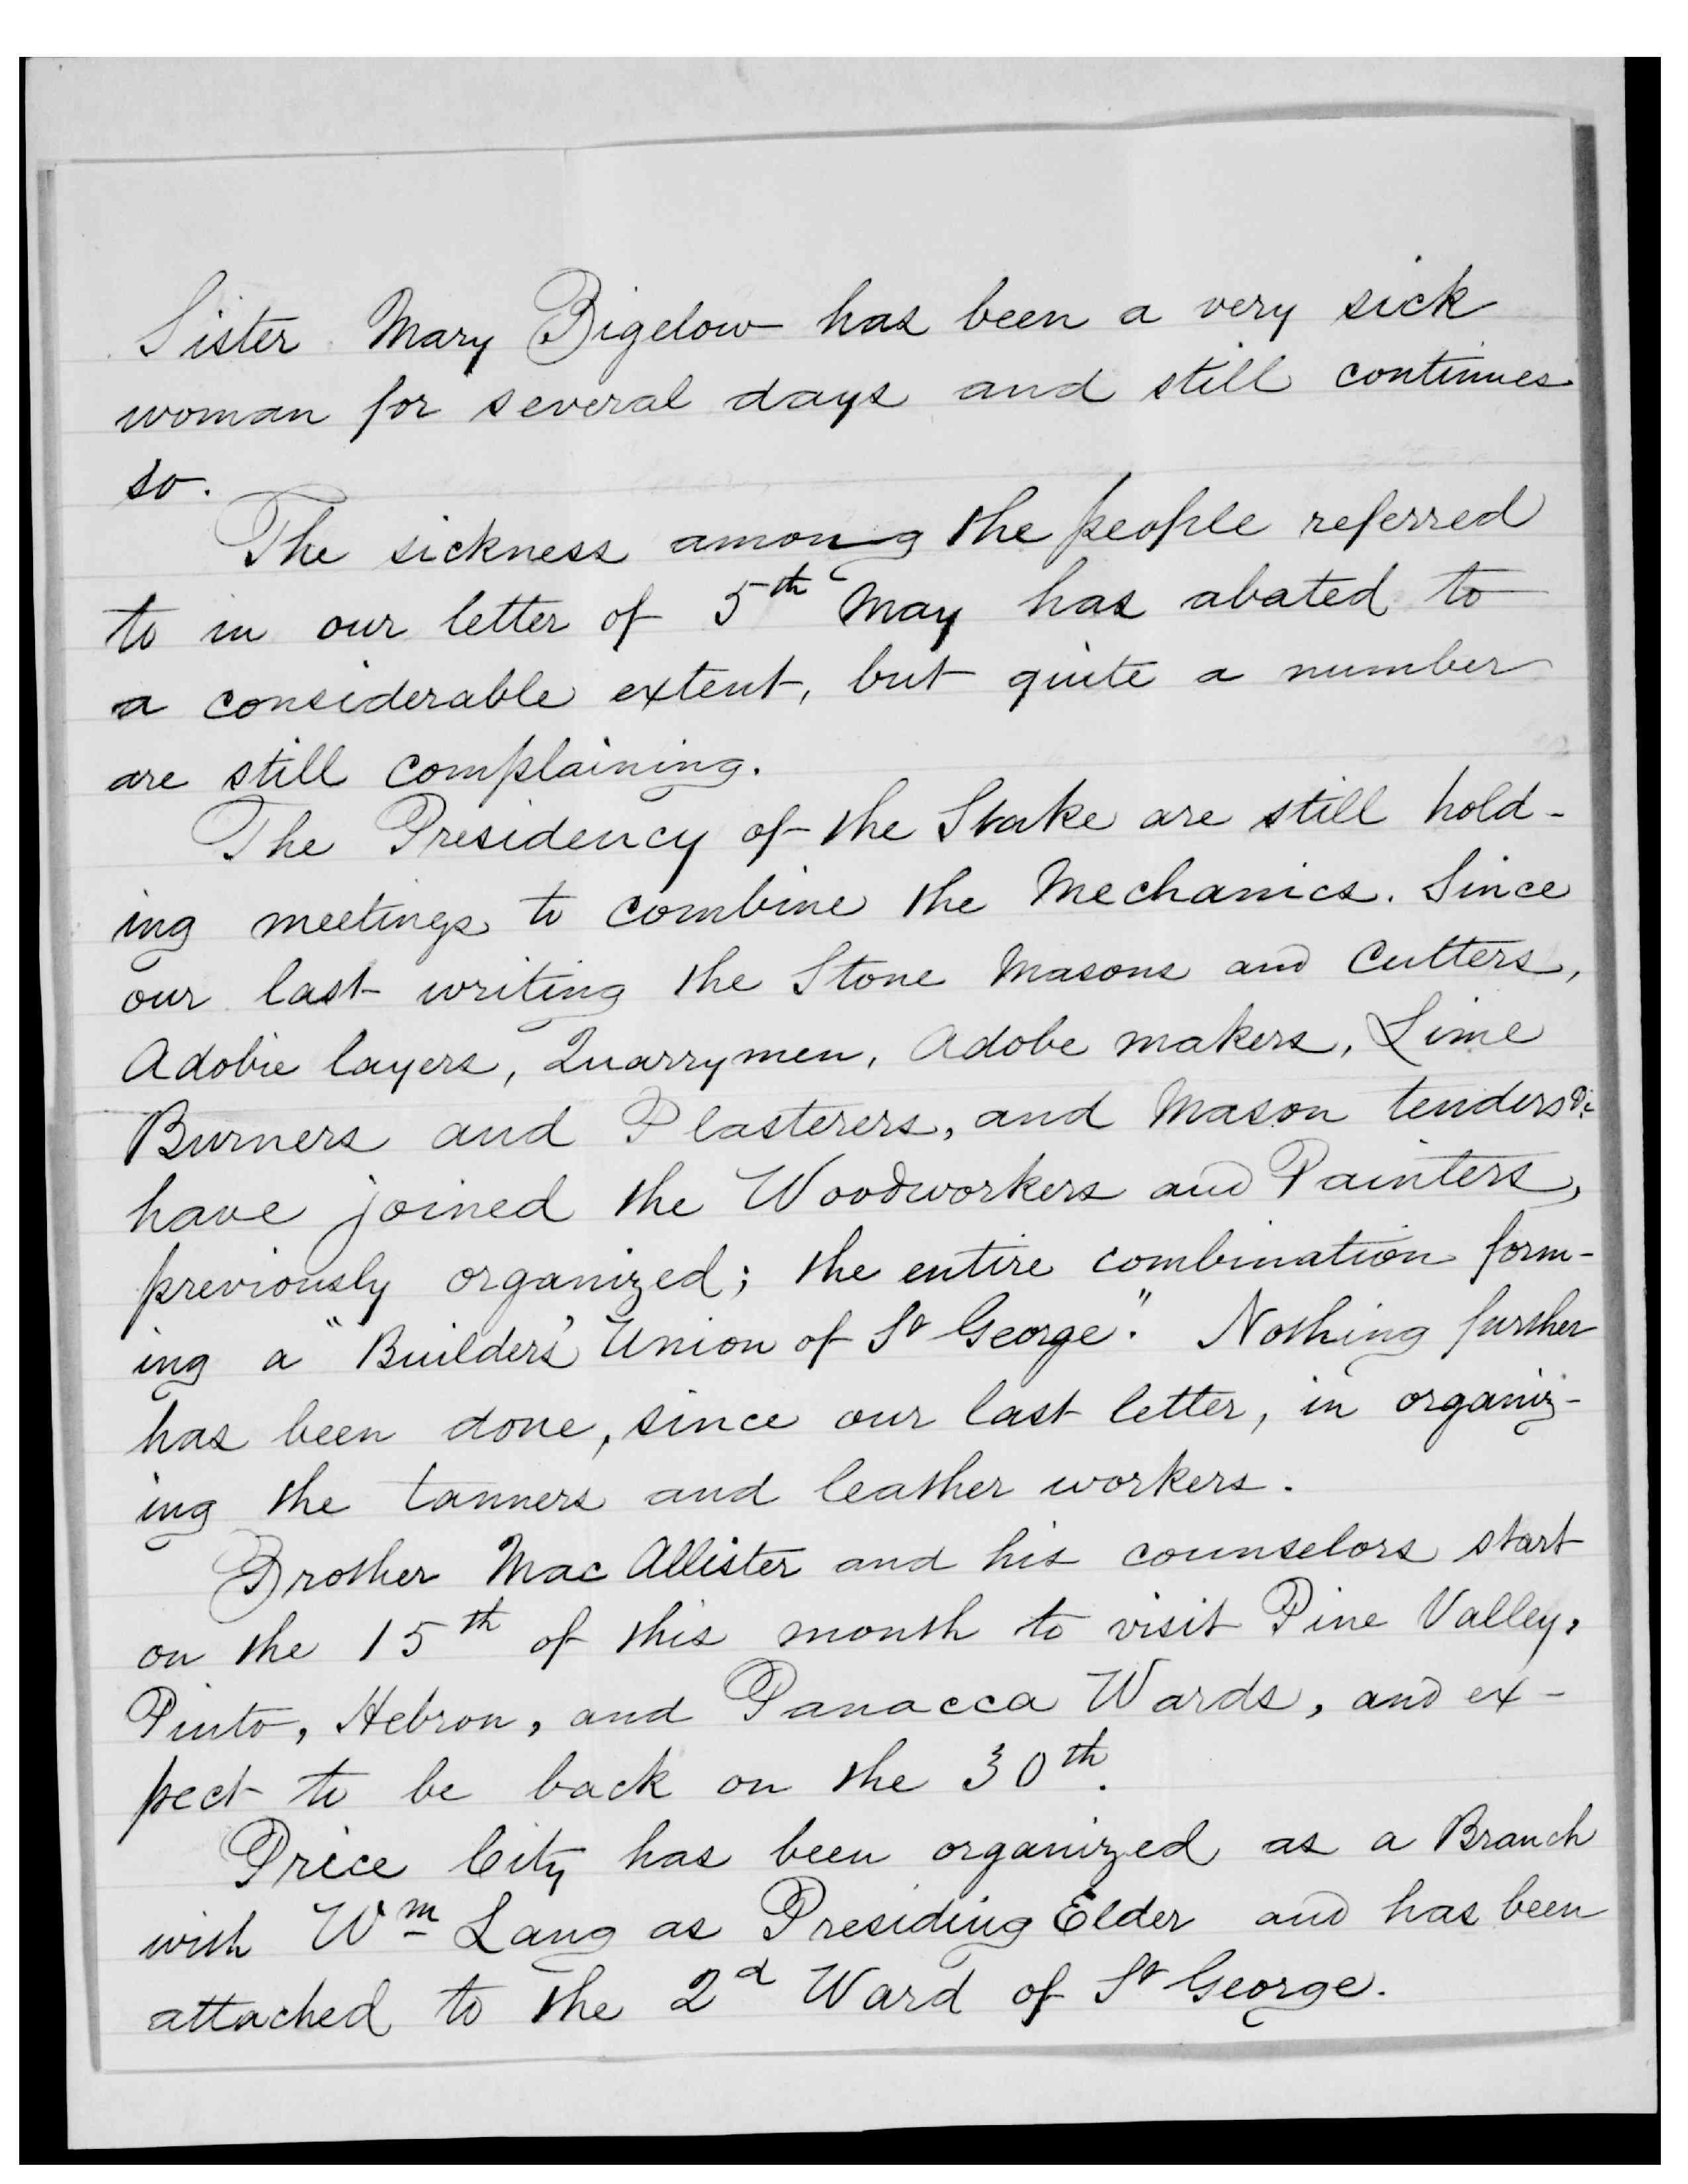 Sister Mary Bigelow has been a very sick
woman for several days and still continues
so.
The sickness among the people referred
to in our letter of 5th May has abated to
a considerable extent, but quite a number
are still complaining.
The Presidency of the Stake are still hold-
ing meetings to combine the Mechanics. Since
our last writing the Stone Masons and Cutters,
Adobie layers, Quarrymen, Adobe makers, Lime
Burners and Plasterers, and Mason tenders &c
have joined the Woodworkers and Painters,
previously organized; the entire combination form-
ing a "Builders' Union of St George". Nothing further
has been done, since our last letter, in organiz-
ing the tanners and leather workers.
Brother Mac Allister and his counselors start
on the 15th of this month to visit Pine Valley,
Pinto, Hebron, and Panacca Wards, and ex-
pect to be back on the 30th.
Price City has been organized as a Branch
with Wm Lang as Presiding Elder and has been
attached to the 2d Ward of St George.